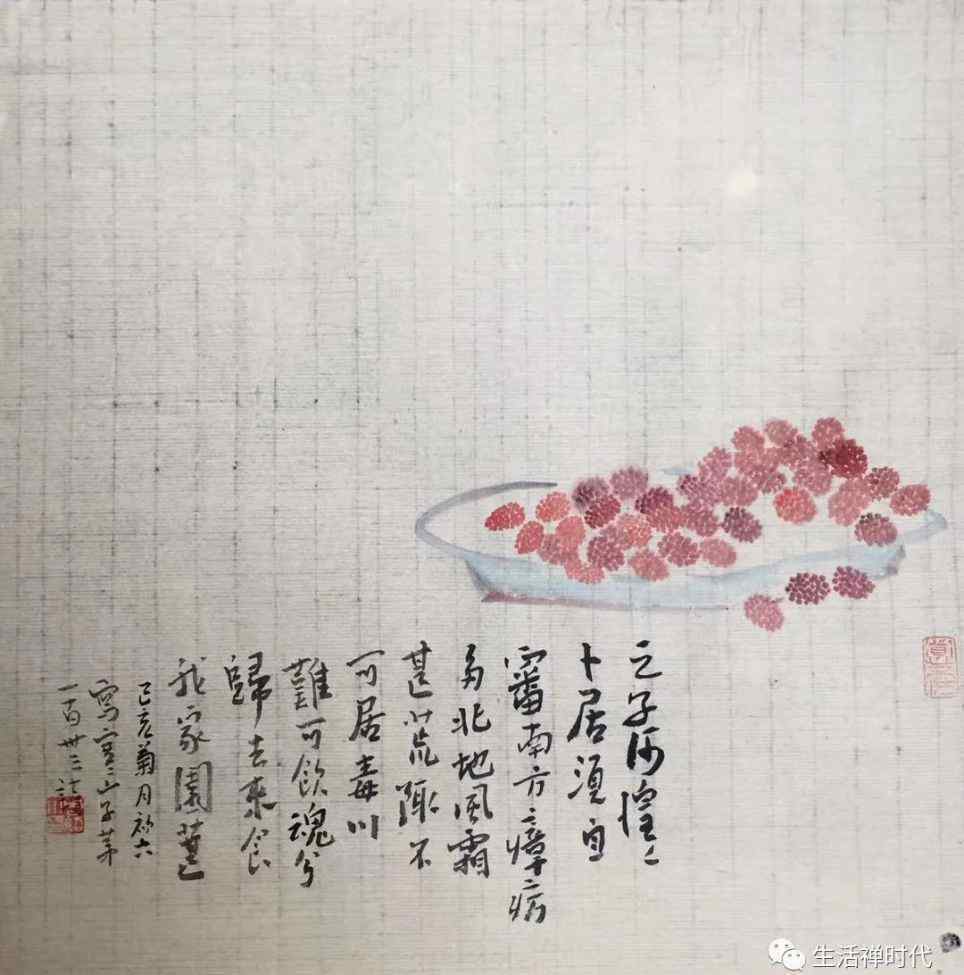 之子何惶々
卜居須自
審南方瘴病
多北地風霜
甚荒陬不
可居毒川
難可飲魂兮
歸去來食
我家園葚
己亥菊月初六
寫寒山子第
一百卅三詩
生活禅时代